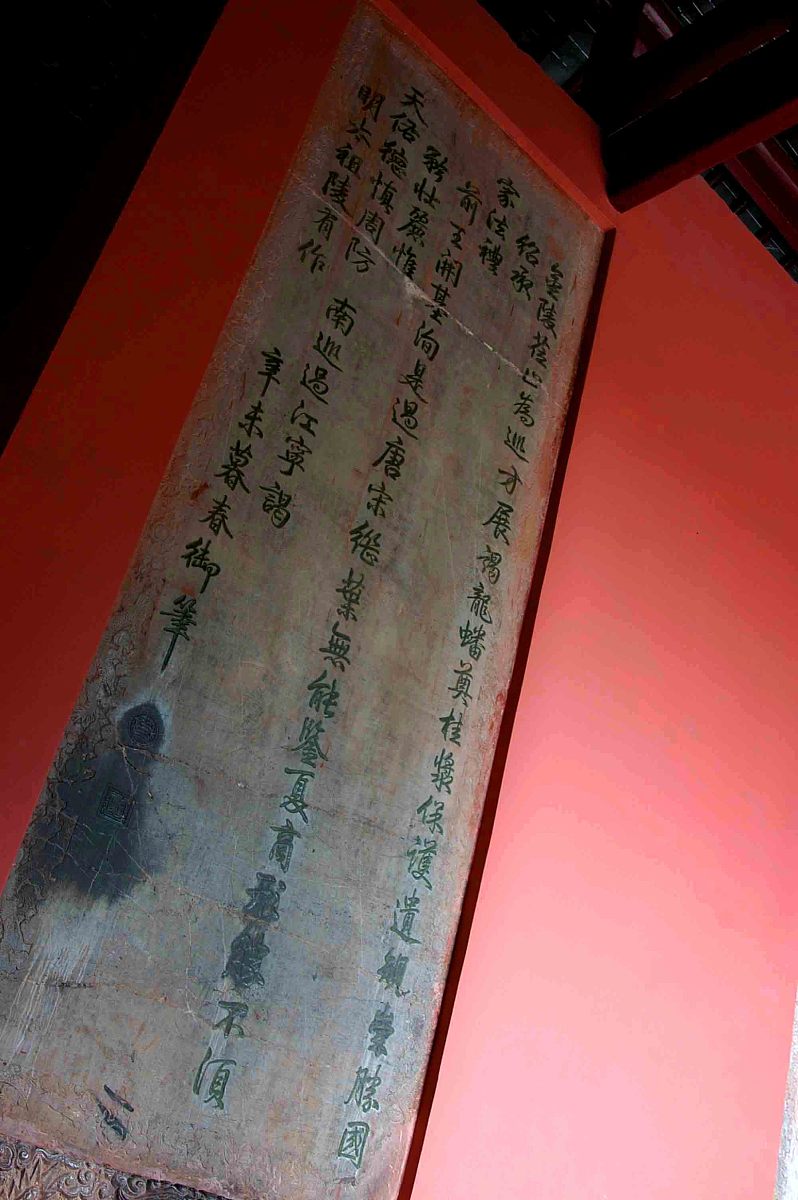 金陵莅止為巡方展謁龍蟠奠桂漿保護遺規崇勝國
紹承
家法禮
前王開基洵是過唐宋繼葉無能鑒夏商形勢不須
矜壯麗惟
天佑德慎周防
南巡過江寧謁
明太祖陵有作
辛未暮春御筆